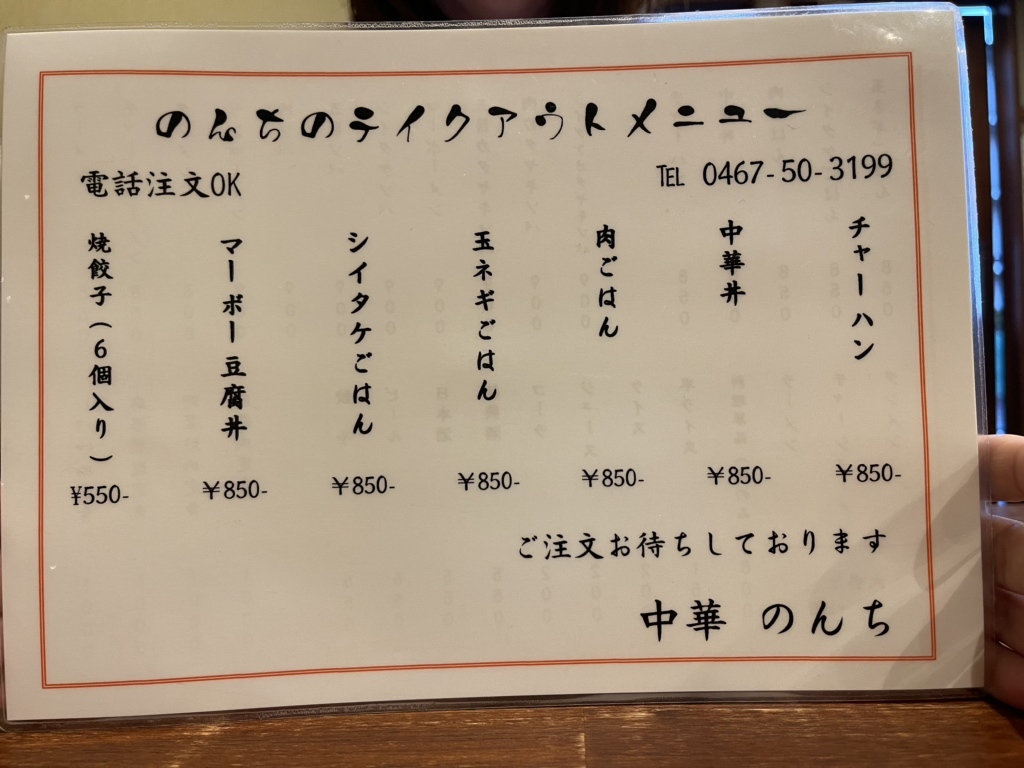 のんちのテイクアウトメニュー
電話注文OK
TEL 0467-50-3199
チャーハン
¥850-
中華丼
¥850-
肉ごはん
¥850-
玉ネギごはん
¥850-
シイタケごはん
¥850-
マーボー豆腐丼
¥850-
焼餃子(6個入り)
¥550-
ご注文お待ちしております
中華 のんち